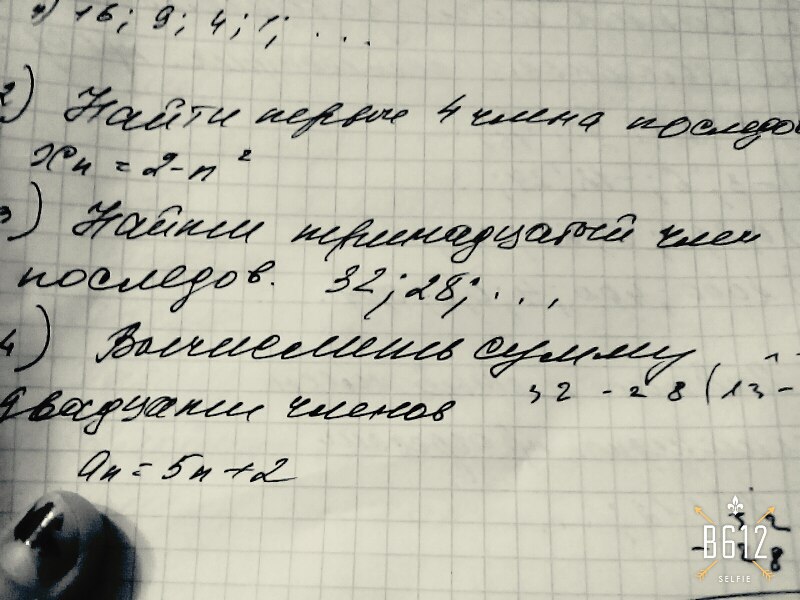 16; 9; 4; 1; ...
2) Найти первые 4 члена последов
xn = 2-n²
3) Найти тринадцатый член
последов. 32; 28; ...,
4) Вычислить сумму
32 - 28 (13 -
двадцати членов
an = 5n + 2
32
- 28
B612
SELFIE